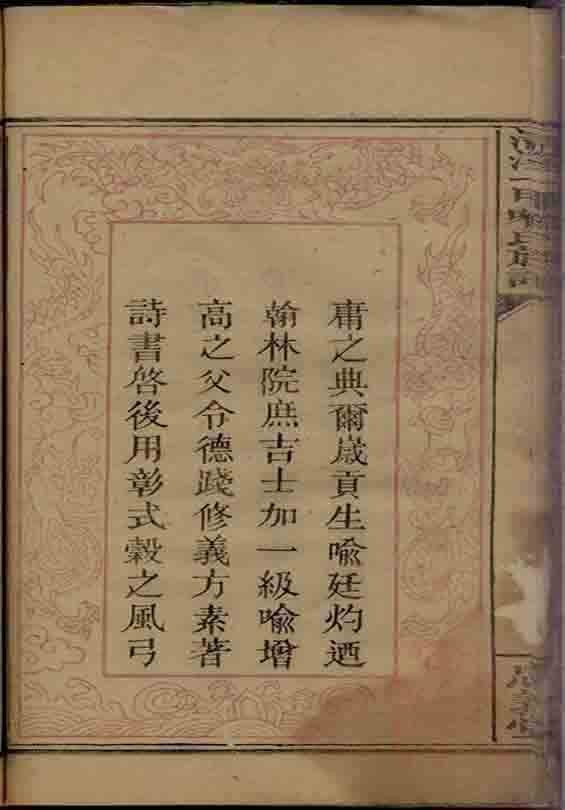 庸之典爾歲貢生喩廷灼迺
翰林院庶吉士加一級喩增
高之父令德踐修義方素著
詩書啓後用彰式榖之風弓